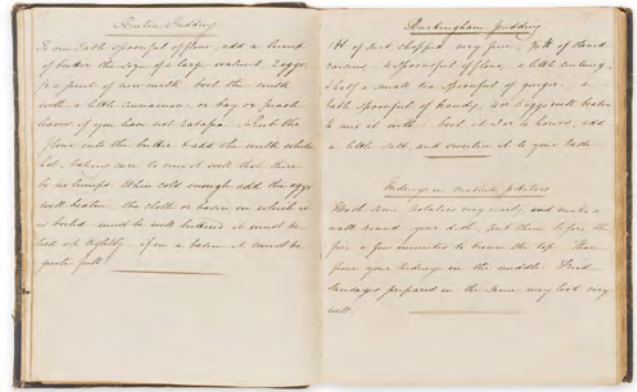 Pudding
To one Table spoonful of flour, add a
of butter the size of a large walnut, 2 eggs
a pint of new milk boil the milk
with a little cinnamon or bay or peach
leaves if you have not ratafia. Rub the
flour into the butter & add the milk while
hot, taking care to mix it well that there
be no lumps. When cold enough add the eggs
well beaten. the cloth or basin in which it
is boiled must be well buttered it must be
tied up tightly if in a basin it must be
quite full
Buckingham Pudding
of suet chopped very fine, of stoned
raisins 4 spoonsful of flour, a little nutmeg
& half a small tea spoonful of ginger. a
table spoonful of brandy, 4 or 5 eggs well beaten
to mix it with boil it 3 or 4 hours, add
a little salt, and sweeten it to your taste
Kidneys in mashed potatoes
Mash some potatoes very nicely, and make a
wall round your dish, put them before the
fire a few minutes to brown the top. Then
pour your kidneys in the middle. Fried
Sausages prepared in the same way look very
well.